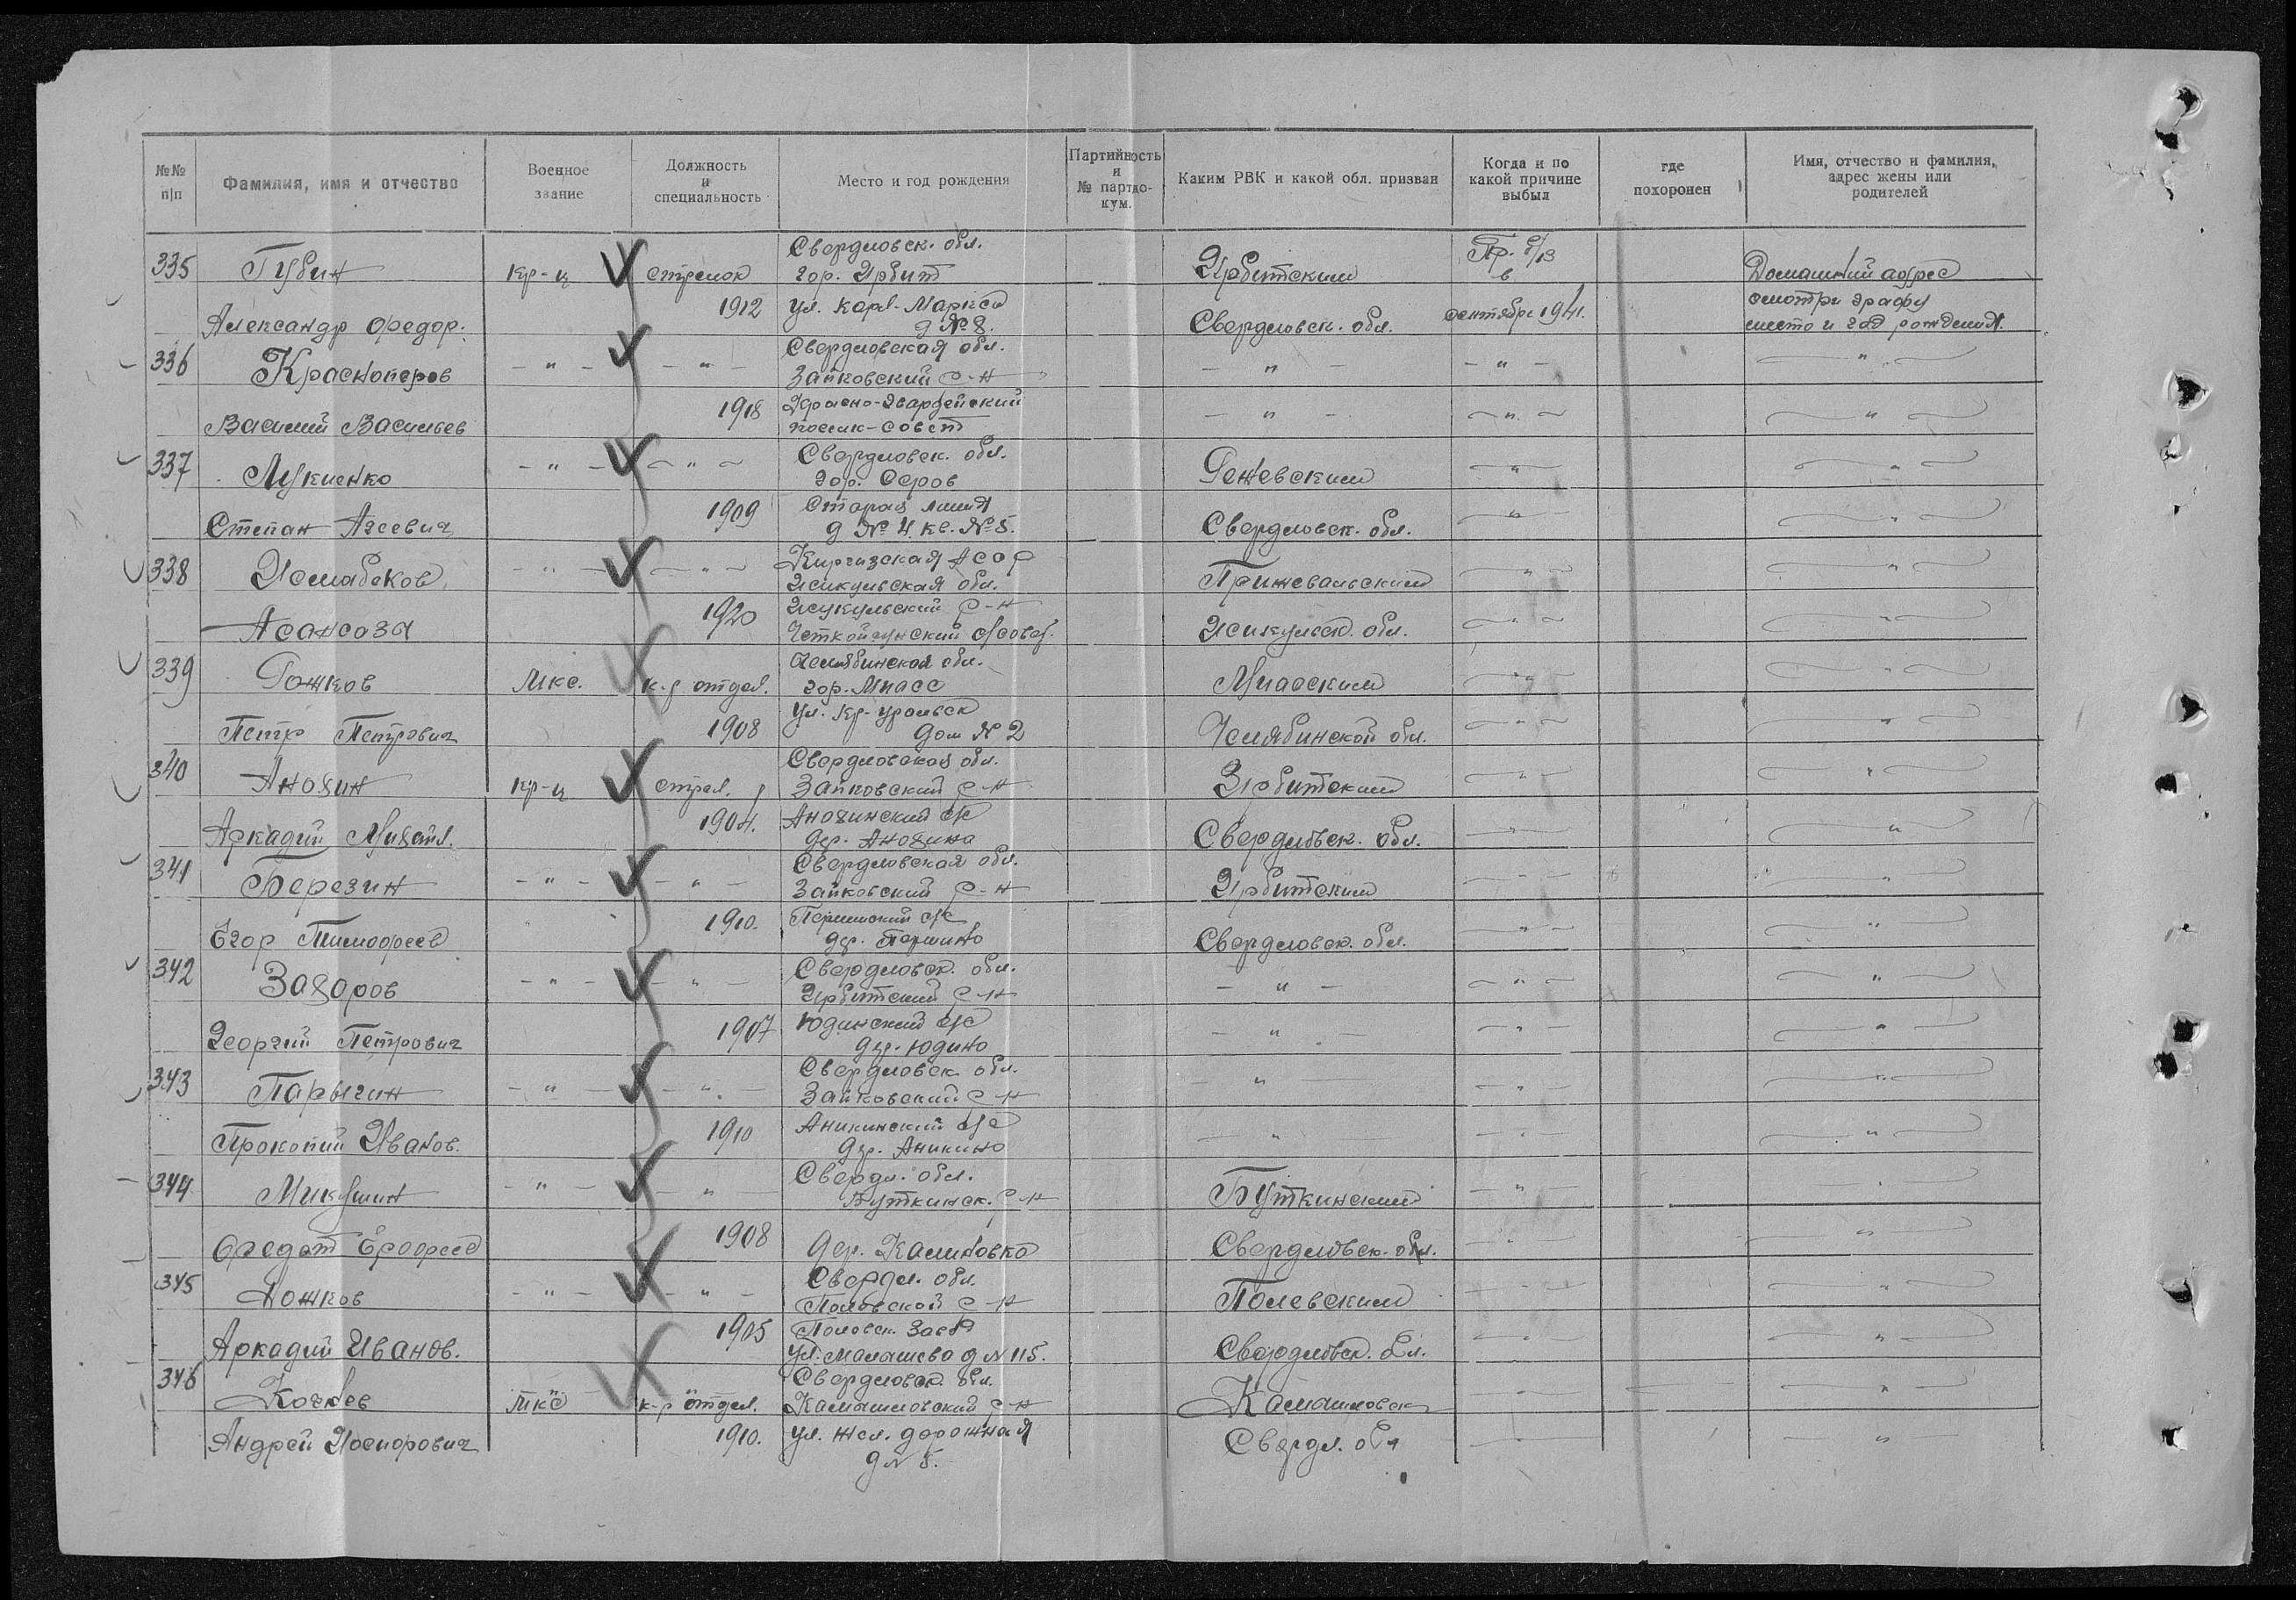 №№ п/п | Фамилия, имя и отчество | Военное звание | Должность и специальность | Место и год рождения | Партийность и № партдокум. | Каким РВК и какой обл. призван | Когда и по какой причине выбыл | где похоронен | Имя, отчество и фамилия, адрес жены или родителей
Свердловск. обл.
335 Губин кр-ц стрелок гор. Ирбит Ирбитским Пр. б/в в Домашний адрес
1912 ул. Карл-Маркса смотри графу
Александр Федор. д № 8. Свердловск. обл. сентябре 1941. место и год рождения.
Свердловская обл.
336 Красноперов -"- -"- Зайковский р-н -"- -"- -"-
1918 Красно-Гвардейский
Василий Васильев посел-совет -"- -"- -"-
Свердловск. обл.
337 Лукиенко -"- -"- гор. Серов Режевским -"- -"-
1909 Старая линия
Степан д № 4 кв. № 5. Свердловск. обл. -"- -"-
Киргизская АССР
338 Исмабеков -"- -"- Исикульская обл. Пржевальским -"- -"-
1920 Исукульский р-н
Асансоза с/совет. Исикульск. обл. -"- -"-
Челябинская обл.
339 Рожков мкс. к-р отдел. гор. Миасс Миасским -"- -"-
1908 ул. Кр-уральск
Петр Петрович дом № 2 Челябинской обл. -"- -"-
Свердловская обл.
340 Анохин кр-ц стрел. Зайковский р-н Ирбитским -"- -"-
1904. Анохинский с/с
Аркадий Михайл. дер. Анохина Свердловск. обл. -"- -"-
Свердловская обл.
341 Березин -"- -"- Зайковский р-н Ирбитским -"- -"-
1910. Першинский с/с
Егор Тимофеев дер. Першино Свердловск. обл. -"- -"-
Свердловск. обл.
342 Захаров -"- -"- Ирбитский р-н -"- -"- -"-
1907 Юдинский с/с
Георгий Петрович дер. Юдино -"- -"- -"-
Свердловск. обл.
343 Парыгин -"- -"- Зайковский р-н -"- -"- -"-
1910 Аникинский с/с
Прокопий Иванов. дер. Аникино -"- -"- -"-
Свердл. обл.
344 Микушин -"- -"- Буткинск. р-н Буткинский -"- -"-
1908
Федот Ерофеев дер. Калиновка Свердловск. обл. -"- -"-
Свердл. обл.
345 Ложков -"- -"- Полевской р-н Полевским -"- -"-
1905 Полевск. завод
Аркадий Иванов. ул. Малышева д № 115. Свердловск. обл. -"- -"-
Свердловск. обл.
346 мкс к-р отдел. Камышловский р-н Камышловск -"- -"-
1910. ул. жел. дорожная
Андрей д № 5. Свердл. обл -"- -"-